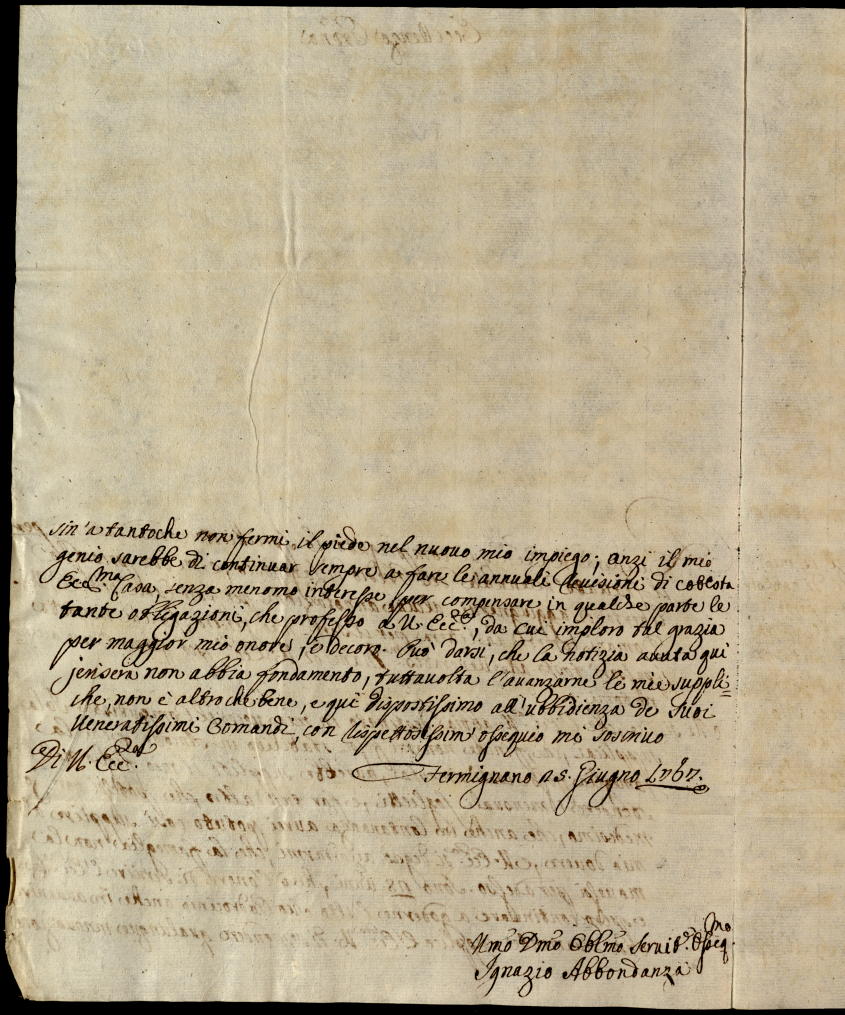 sin'a tantoche non fermi il piede nel nuovo mio impiego; anzi il mio
genio sarebbe di continuar sempre a fare le annuali revisioni di cotesta
Ecc.ma Casa, senza menomo interesse per compensare in qualche parte le
tante obbligazioni, che professo a V. Ecc.a, da cui imploro tal grazia
per maggior mio onore, e decoro. Può darsi, che la notizia avuta qui
jerisera non abbia fondamento, tuttavolta l'avanzarne le mie suppli=
che, non è altro che bene, e qui dispostissimo all'ubbidienza de Suoi
Veneratissimi Comandi, con rispettosissim'ossequio mi soscrivo
Di V. Ecc.za
Fermignano a 5. Giugno 1767.
Umo Dmo Obblmo Servit.e Osseq.mo
Ignazio Abbondanza